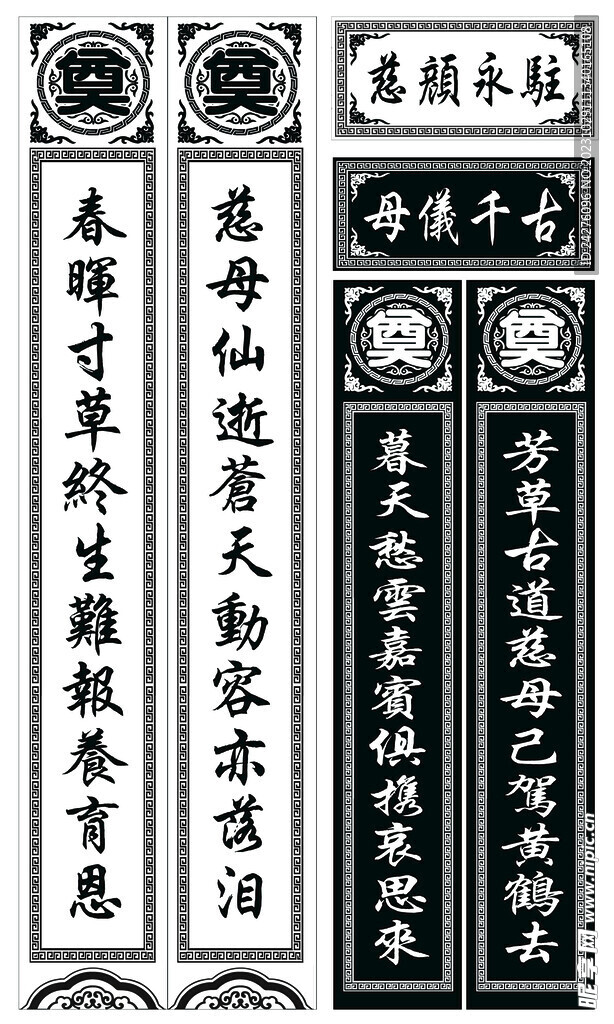 奠
奠
慈母仙逝蒼天動容亦落泪
春暉寸草終生難報養育恩
慈顔永駐
母儀千古
奠
奠
芳草古道慈母己駕黄鶴去
暮天愁雲嘉賓俱携哀思來
昵享网 www.nipic.cn